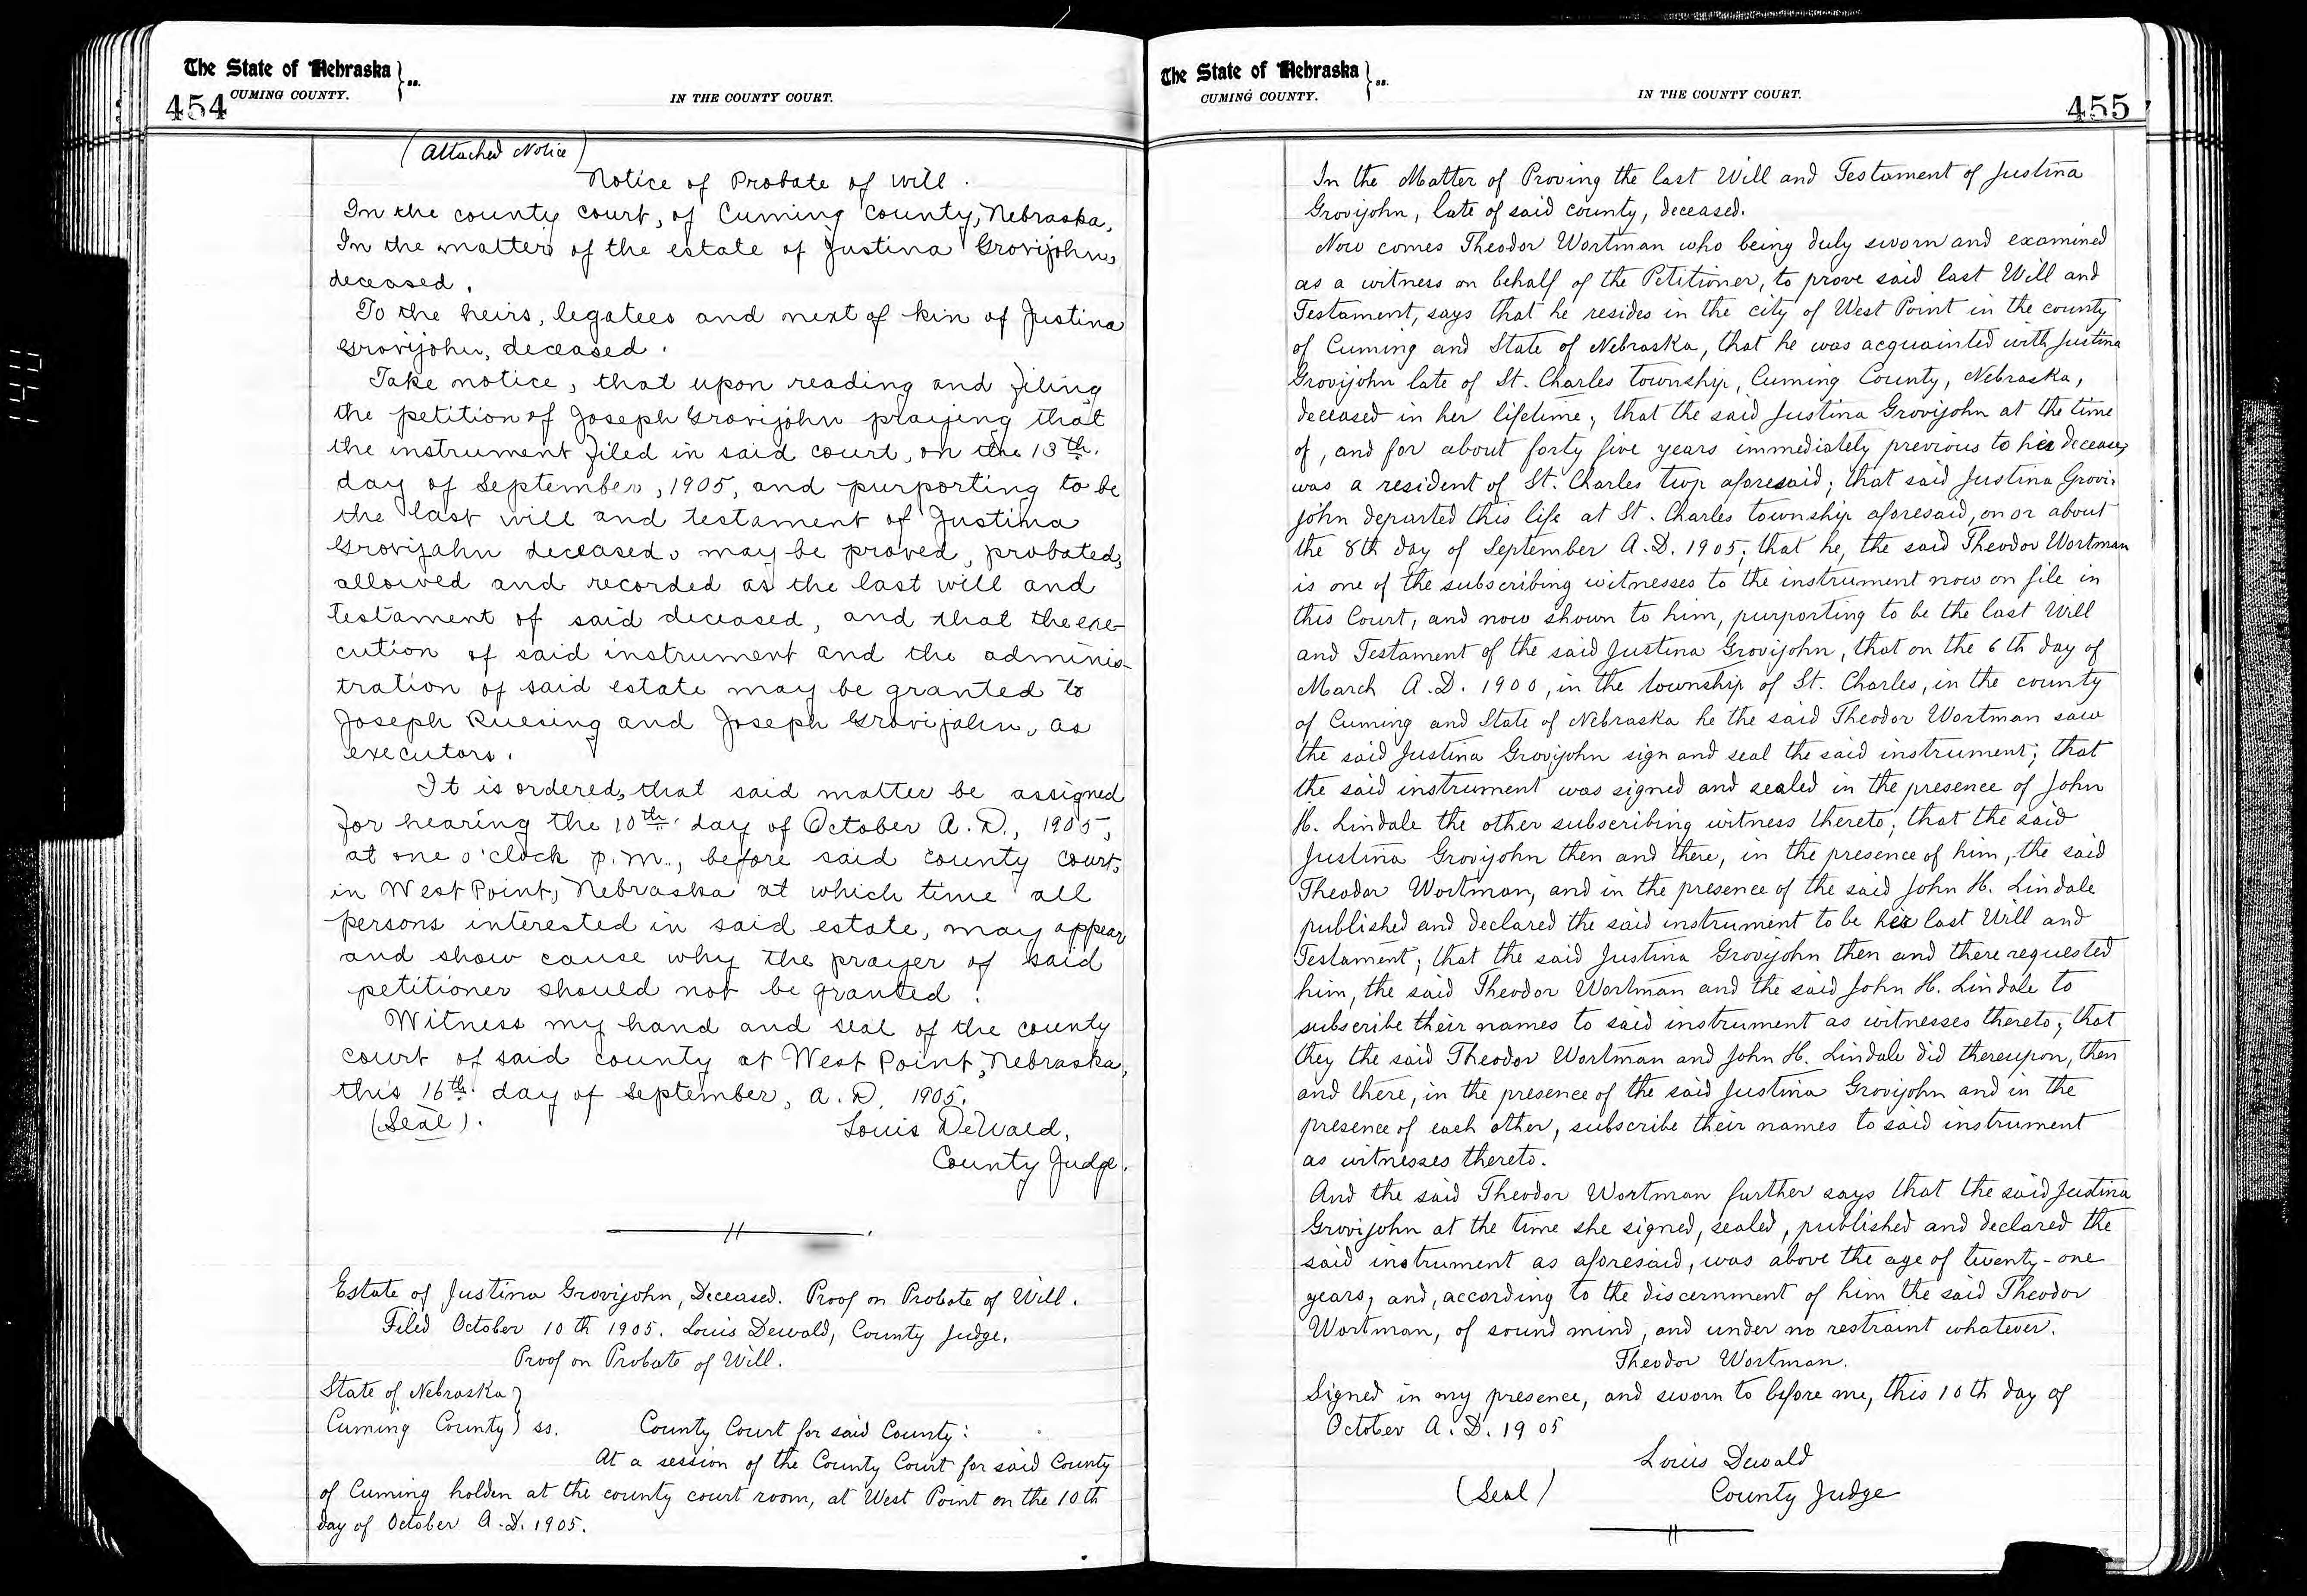 The State of Nebraska } ss.
CUMING COUNTY.
454
IN THE COUNTY COURT.
(Attached Notice)
Notice of Probate of Will.
In the county court, of Cuming County, Nebraska.
In the matter of the estate of Justina Grovijohn,
deceased.
To the heirs, legatees and next of kin of Justina
Grovijohn, deceased.
Take notice, that upon reading and filing
the petition of Joseph Grovijohn praying that
the instrument filed in said court, on the 13th.
day of September, 1905, and purporting to be
the last will and testament of Justina
Grovijahn deceased, may be proved, probated,
allowed and recorded as the last will and
testament of said deceased, and that the exe-
cution of said instrument and the adminis-
tration of said estate may be granted to
Joseph Ruesing and Joseph Grovijahn, as
executors.
It is ordered, that said matter be assigned
for hearing the 10th. day of October A. D., 1905,
at one o'clock p.m., before said county court,
in West Point, Nebraska at which time all
persons interested in said estate, may appear
and show cause why the prayer of said
petitioner should not be granted.
Witness my hand and seal of the county
court of said county at West Point, Nebraska,
this 16th. day of September, A. D. 1905.
(Seal).
Louis DeWald,
County Judge.
Estate of Justina Grovijohn, Deceased. Proof on Probate of Will.
Filed October 10th 1905. Louis Dewald, County Judge.
Proof on Probate of Will.
State of Nebraska }
Cuming County } ss. County Court for said County:
At a session of the County Court for said County
of Cuming holden at the county court room, at West Point on the 10th
day of October A.D. 1905.
The State of Nebraska } ss.
CUMING COUNTY.
IN THE COUNTY COURT.
455
In the Matter of Proving the last Will and Testament of Justina
Grovijohn, late of said county, deceased.
Now comes Theodor Wortman who being duly sworn and examined
as a witness on behalf of the Petitioner, to prove said last Will and
Testament, says that he resides in the city of West Point in the county
of Cuming and State of Nebraska, that he was acquainted with Justina
Grovijohn late of St. Charles township, Cuming County, Nebraska,
deceased in her lifetime; that the said Justina Grovijohn at the time
of, and for about forty five years immediately previous to her decease,
was a resident of St. Charles twp aforesaid; that said Justina Grovi-
john departed this life at St. Charles township aforesaid, on or about
the 8th day of September A.D. 1905; that he, the said Theodor Wortman
is one of the subscribing witnesses to the instrument now on file in
this Court, and now shown to him, purporting to be the last Will
and Testament of the said Justina Grovijohn, that on the 6th day of
March A.D. 1900, in the township of St. Charles, in the county
of Cuming and State of Nebraska he the said Theodor Wortman saw
the said Justina Grovijohn sign and seal the said instrument; that
the said instrument was signed and sealed in the presence of John
H. Lindale the other subscribing witness thereto; that the said
Justina Grovijohn then and there, in the presence of him, the said
Theodor Wortman, and in the presence of the said John H. Lindale
published and declared the said instrument to be her last Will and
Testament; that the said Justina Grovijohn then and there requested
him, the said Theodor Wortman and the said John H. Lindale to
subscribe their names to said instrument as witnesses thereto; that
they the said Theodor Wortman and John H. Lindale did thereupon, then
and there, in the presence of the said Justina Grovijohn and in the
presence of each other, subscribe their names to said instrument
as witnesses thereto.
And the said Theodor Wortman further says that the said Justina
Grovijohn at the time she signed, sealed, published and declared the
said instrument as aforesaid, was above the age of twenty-one
years, and, according to the discernment of him the said Theodor
Wortman, of sound mind, and under no restraint whatever.
Theodor Wortman.
Signed in my presence, and sworn to before me, this 10th day of
October A.D. 1905
Louis Dewald
(Seal) County Judge